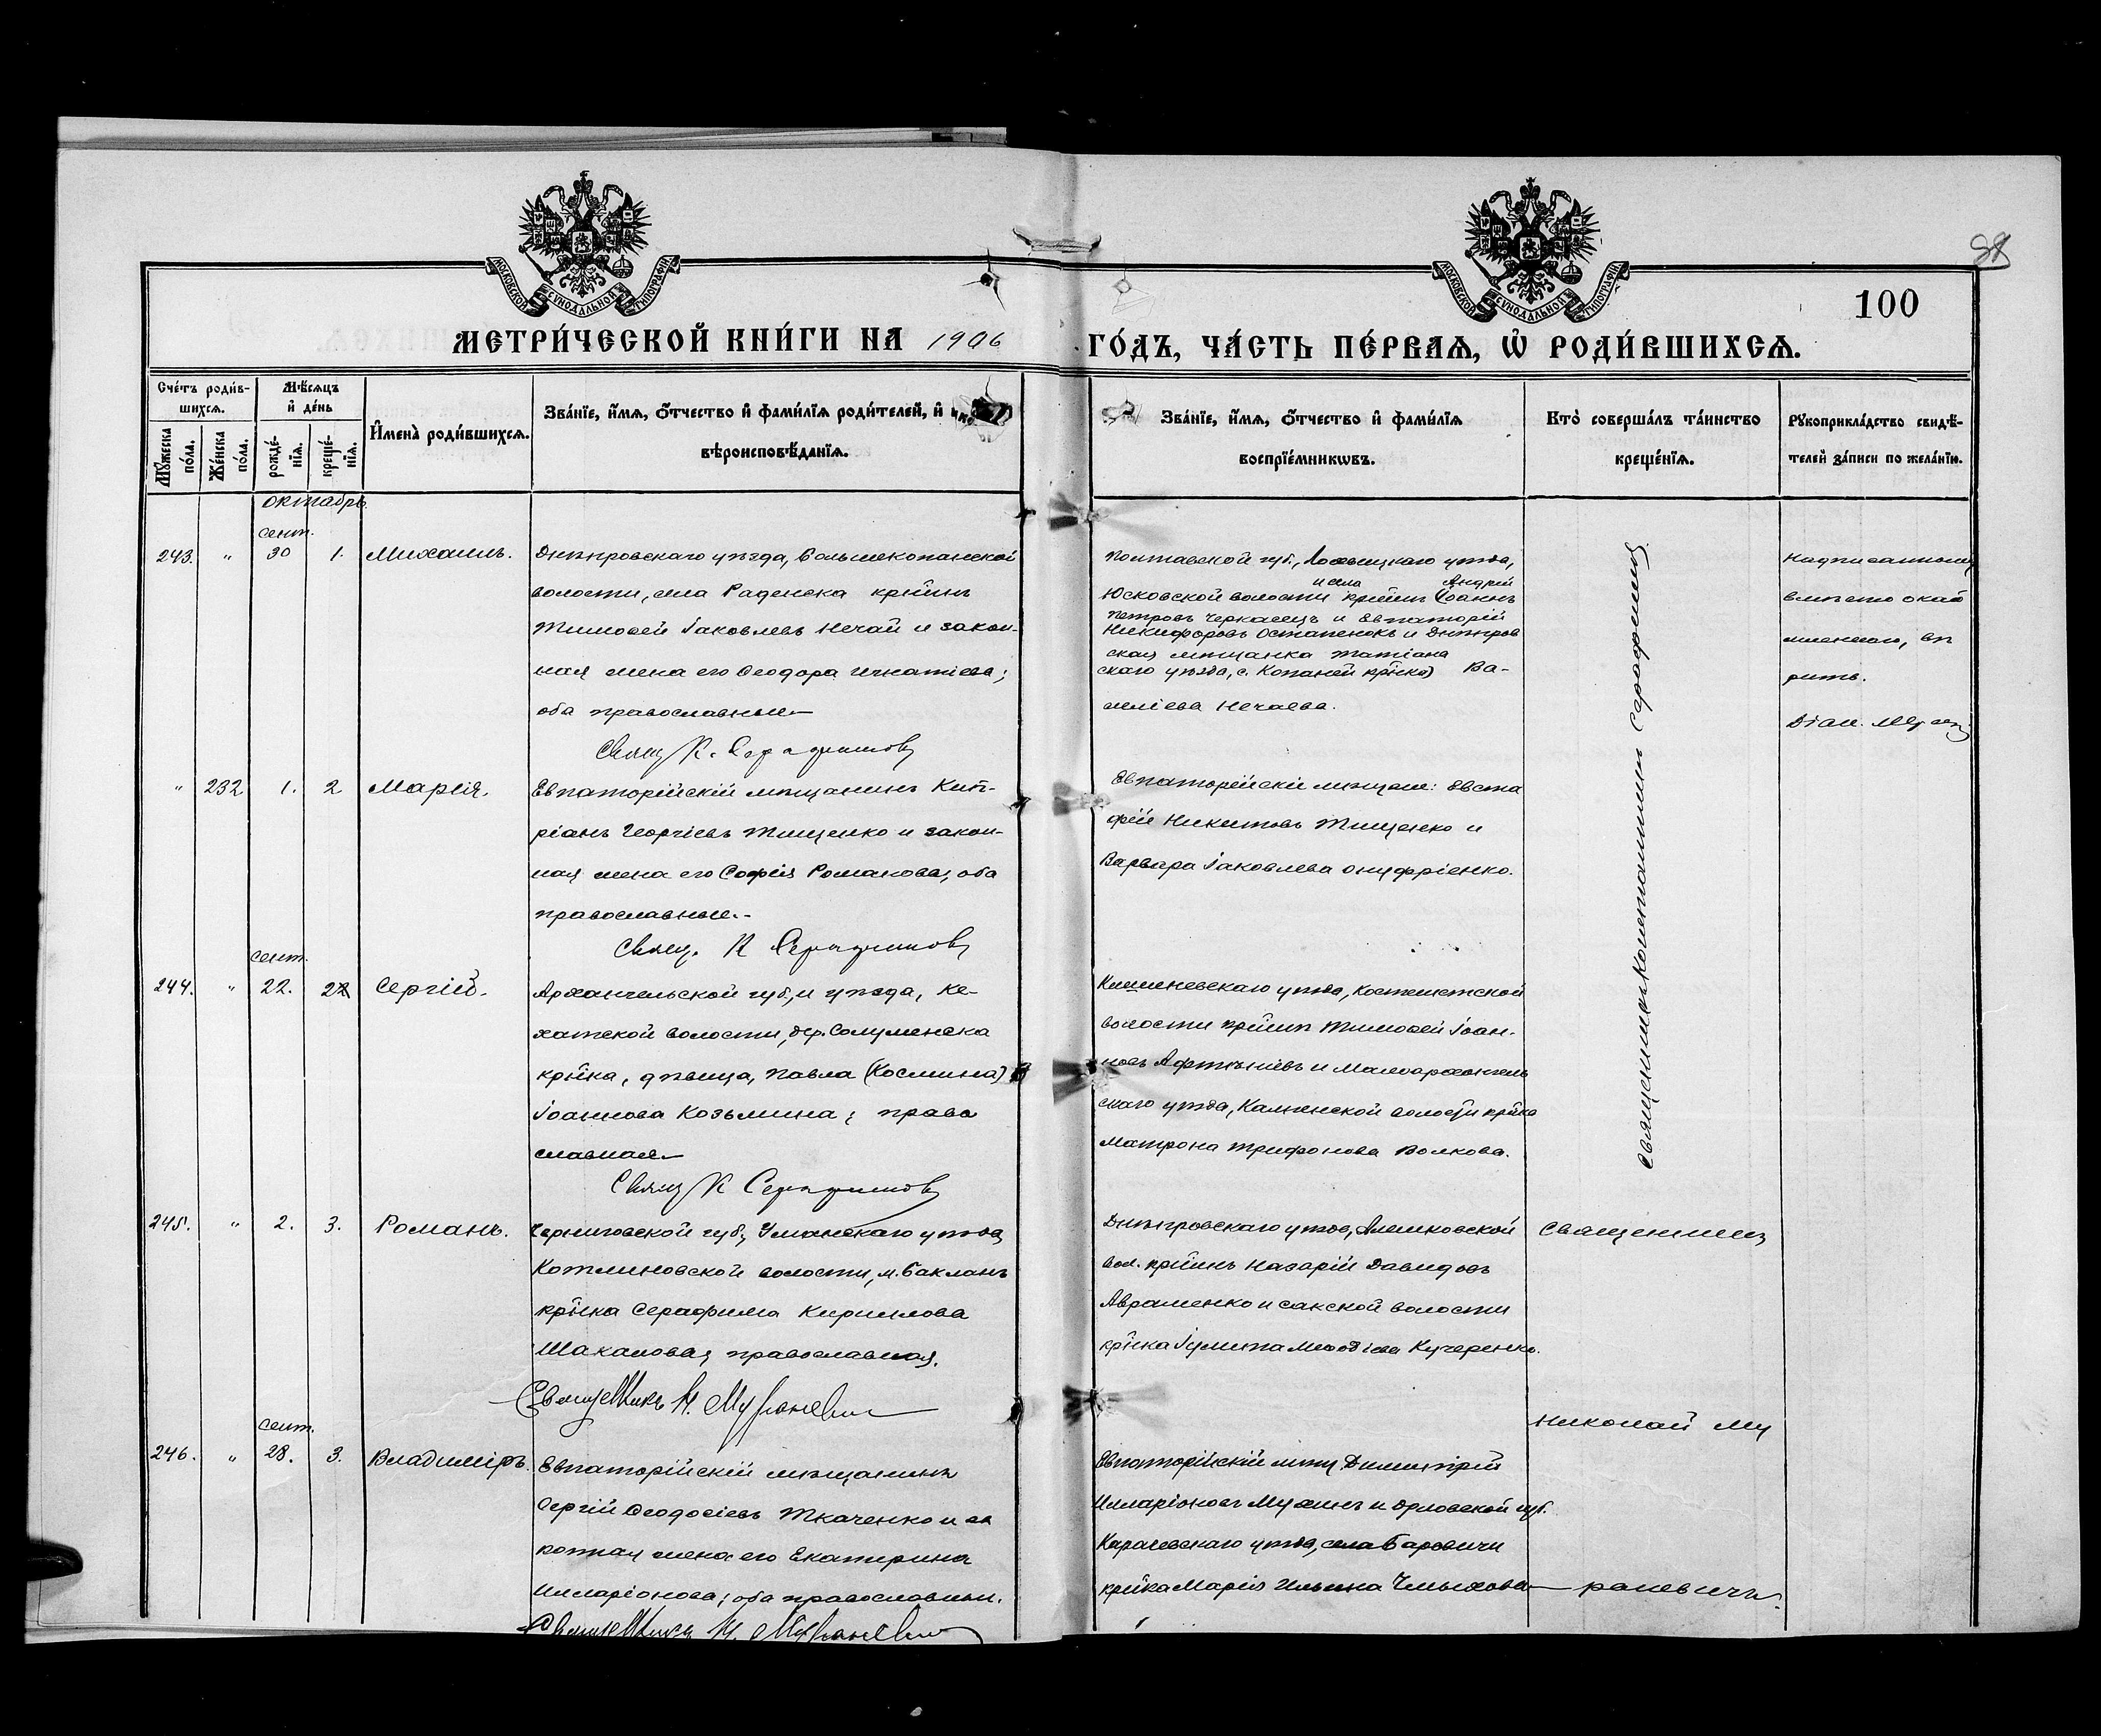 98
100
МОСКОВСКОЙ СѴНОДАЛЬНОЙ ТИПОГРАФІИ
МОСКОВСКОЙ СѴНОДАЛЬНОЙ ТИПОГРАФІИ
МЕТРИ́ЧЕСКОЙ КНИ́ГИ НА 1906
ГО́ДЪ, ЧА́СТЬ ПЕ́РВАѦ, Ѡ҆ РОДИ́ВШИХСѦ.
Сче́тъ роди́в-
шихсѧ.
Мѣ́сѧцъ
и҆ де́нь
Мꙋ́жеска
по́ла.
Же́нска
по́ла.
рожде́-
нїѧ.
креще́-
нїѧ.
И҆мена̀ роди́вшихсѧ.
Зва́нїе, и҆́мѧ, ѻ҆́тчество и҆ фами́лїѧ роди́телей, и҆
вѣроисповѣ́данїѧ.
Зва́нїе, и҆́мѧ, ѻ҆́тчество и҆ фами́лїѧ
воспрїе́мникѡвъ.
Кто̀ соверша́лъ та́инство
креще́нїѧ.
Рꙋкоприкла́дство свидѣ́-
телей за́писи по жела́нїю.
октябрь.
сент.
243. " 30 1. Михаилъ.
Днѣпровскаго уѣзда, Большекопанской
волости, села Раденска кр̃нинъ
Тимоѳей Іаковлевъ Нечай и закон-
ная жена его Ѳеодора Игнатіева;
оба православные.
Свящ К. Серафимовъ
Полтавской губ., Лохвицкаго уѣзда,
и села Андрей
Юсковской волости кр̃нинъ Іоаннъ
Петровъ Черкасецъ и Евпаторій
Никифоровъ Остапенокъ и Днѣпров
ская мѣщанка Татіана
скаго уѣзда, с. Копаней кр̃нка) Ва-
силіева Нечаева.
Священникъ Константинъ Серафимовъ.
Надписанному
вмѣсто
вѣ
рить.
" 232 1. 2 Марія.
Евпаторійскій мѣщанинъ Кип-
ріанъ Георгіевъ Тищенко и закон-
ная жена его Софія Романова; оба
православные.-
Свящ. К Серафимовъ
Евпаторійскіе мѣщане: Евста
фій Никитовъ Тищенко и
Варвара Іаковлева Онуфріенко.
сент.
244. " 22. 2 Сергій.
Архангельской губ., и уѣзда, Ке-
хатской волости, дер.
кр̃нка, дѣвица, Павла (Космина)
Іоаннова Козьмина; право
славная.
Свящ К Серафимовъ
Кишиневскаго уѣзда, Костештской
волости кр̃нинъ Тимоѳей Іоан-
новъ и Малоархангель
скаго уѣзда, волости кр̃нка
Матрона Трифонова Волкова.
245. " 2. 3. Романъ.
Черниговской губ., Уманскаго уѣзда,
Котлиновской волости, м. Бакланъ
кр̃нка Серафима Кириллова
Шакалова, православная.
Священникъ Н. Мураневичъ
Днѣпровскаго уѣзда, Алешковской
вол. кр̃нинъ Назарій Давидовъ
Авраменко и Сакской волости
кр̃нка Іулита Меѳодіева Кучеренко.
Священникъ
Николай Му
раневичъ.
сент.
246. " 28. 3. Владиміръ.
Евпаторійскій мѣщанинъ
Сергій Ѳеодосіевъ Ткаченко и за
конная жена его Екатерина
Илларіонова; оба православные.
Священникъ Н. Мураневичъ
Евпаторійскій мѣщ. Димитрій
Илларіоновъ Мухинъ и Орловской губ.
Карачевскаго уѣзда, села Баровичи
кр̃нка Марія Ильина Чмыхова